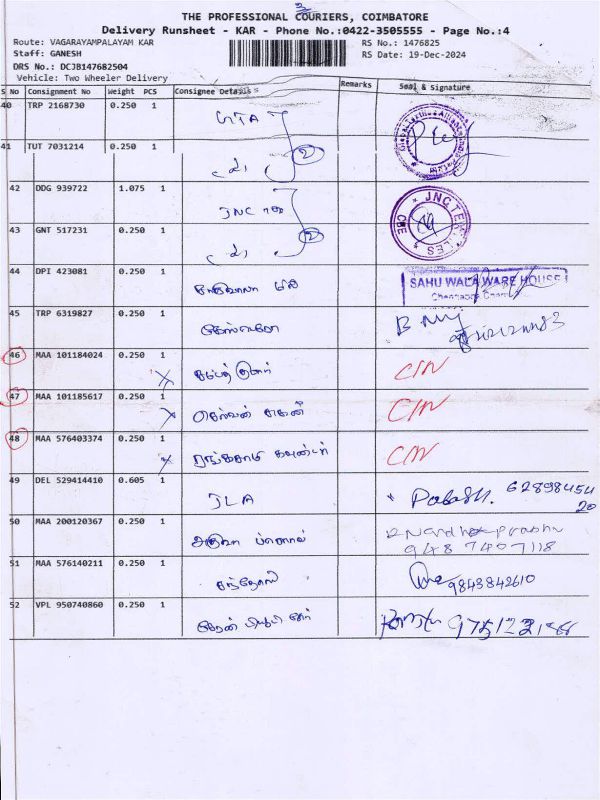 THE PROFESSIONAL COURIERS, COIMBATORE
Delivery Runsheet - KAR - Phone No.:0422-3505555 - Page No.:4
Route: VAGARAYAMPALAYAM KAR
RS No.: 1476825
Staff: GANESH
RS Date: 19-Dec-2024
DRS No.: DCJB147682504
Vehicle: Two Wheeler Delivery
S No Consignment No Weight PCS Consignee Details Remarks Seal & Signature
40 TRP 2168730 0.250 1 GTA
41 TUT 7031214 0.250 1 2
42 DDG 939722 1.075 1 JNC JNC TEXTILES CBE
43 GNT 517231 0.250 1 2
44 DPI 423081 0.250 1 SAHU WALA WARE HOUSE
45 TRP 6319827 0.250 1
46 MAA 101184024 0.250 1 X சம்பத் குமார் C/N
47 MAA 101185617 0.250 1 X C/N
48 MAA 576403374 0.250 1 X C/N
49 DEL 529414410 0.605 1 JLA 62898454
20
50 MAA 200120367 0.250 1
948 7407118
51 MAA 576140211 0.250 1 சந்தோஸ் 9843842610
52 VPL 950740860 0.250 1